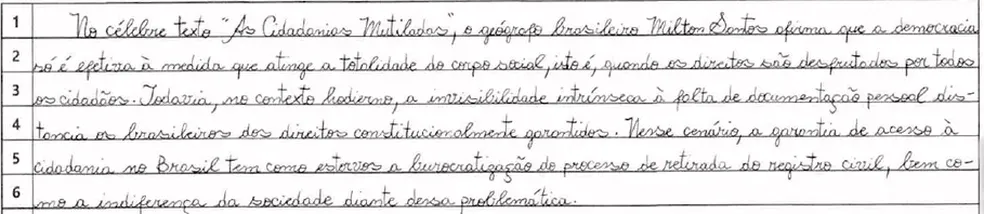 1 No célebre texto "As Cidadanias Mutiladas", o geógrafo brasileiro Milton Santos afirma que a democracia
2 só é efetiva à medida que atinge a totalidade do corpo social, isto é, quando os direitos são desfrutados por todos
3 os cidadãos. Todavia, no contexto hodierno, a invisibilidade intrínseca à falta de documentação pessoal dis-
4 tancia os brasileiros dos direitos constitucionalmente garantidos. Nesse cenário, a garantia de acesso à
5 cidadania no Brasil tem como estorvos a burocratização do processo de retirada do registro civil, bem co-
6 mo a indiferença da sociedade diante dessa problemática.